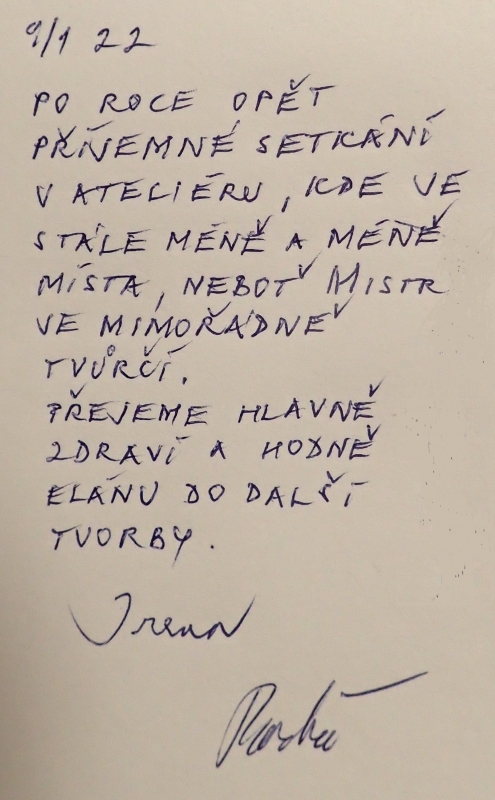 9/1 22
PO ROCE OPĚT
PŘÍJEMNÉ SETKÁNÍ
V ATELIÉRU, KDE VE
STÁLE MÉNĚ A MÉNĚ
MÍSTA, NEBOŤ MISTR
VE MIMOŘÁDNĚ
TVŮRČÍ.
PŘEJEME HLAVNĚ
ZDRAVÍ A HODNĚ
ELÁNU DO DALŠÍ
TVORBY.
Irena